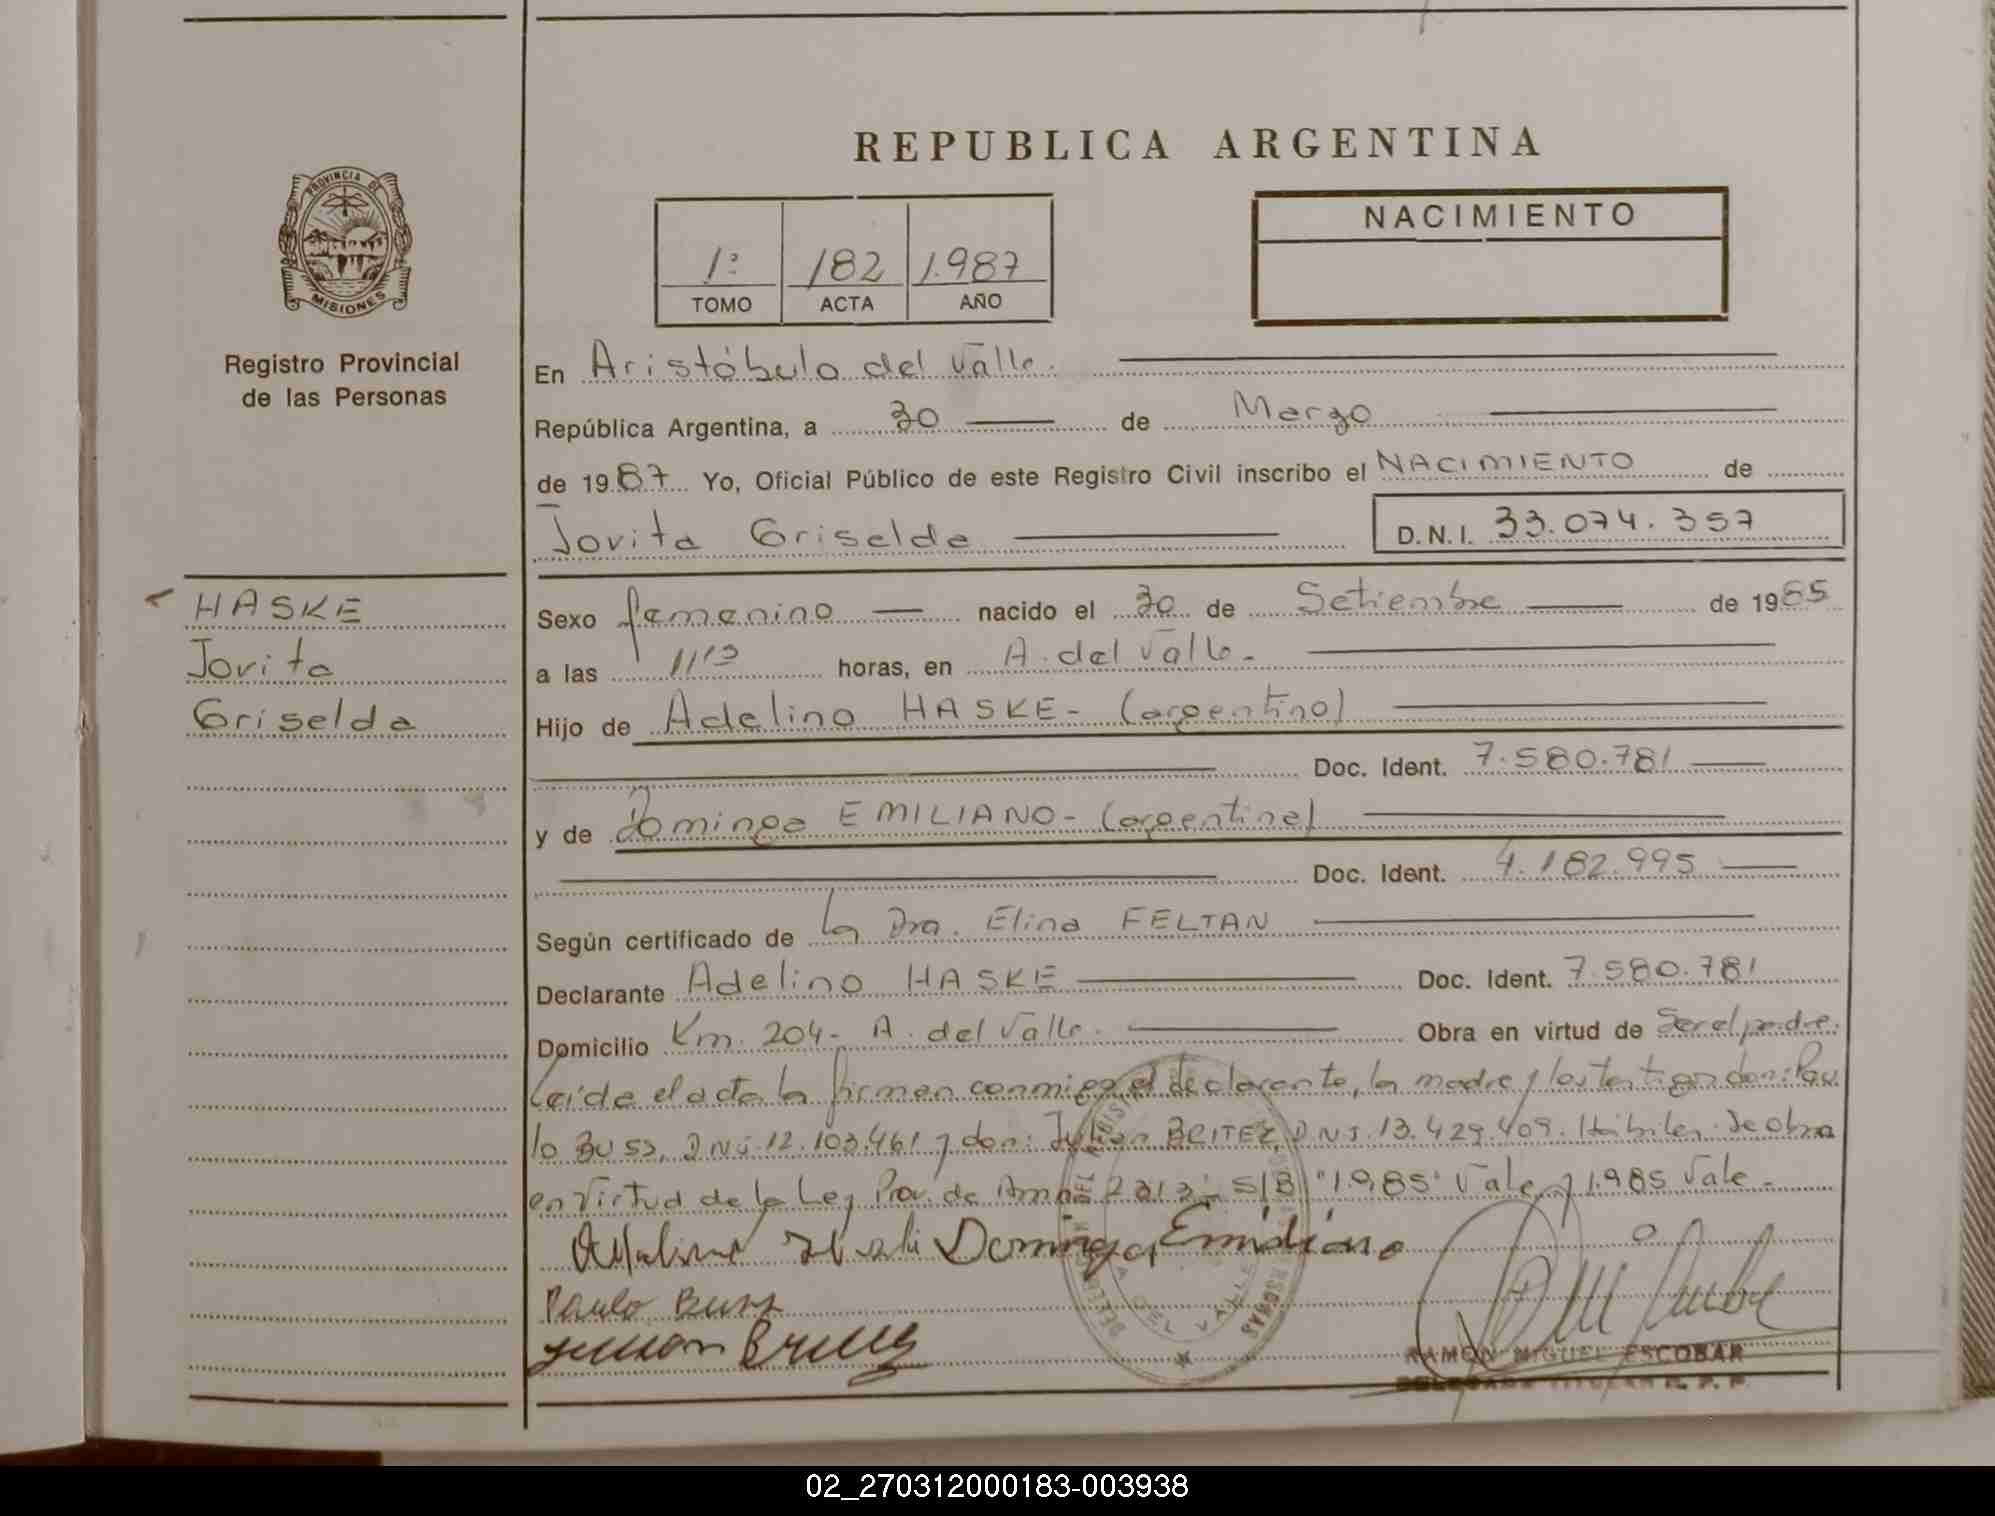 REPUBLICA ARGENTINA
PROVINCIA DE
MISIONES
Registro Provincial
de las Personas
1º 182 1.987
TOMO ACTA AÑO
NACIMIENTO
En Aristóbulo del Valle.
República Argentina, a 30 de Marzo
de 1987 Yo, Oficial Público de este Registro Civil inscribo el NACIMIENTO de
Jovita Griselda D.N.I. 33.074.357
HASKE
Jovita
Griselda
Sexo femenino nacido el 30 de Setiembre de 1985
a las horas, en A. del Valle-
Hijo de Adelino HASKE- (argentino)
Doc. Ident. 7.580.781
y de Dominga EMILIANO- (argentina)
Doc. Ident. 4.182.995
Según certificado de la Dra. Elina FELTAN
Declarante Adelino HASKE Doc. Ident. 7.580.781
Domicilio Km. 204- A. del Valle. Obra en virtud de Ser el padre.
Leída el acta la firman conmigo el declarante, la madre y los testigos don: Pau
lo BUSS, DNI. 12.103.461 y don: Julian BRITEZ, D.N.I. 13.429.409. Hábiles. Se obra
en Virtud de la Ley Prov. de Amn. 2313- S/B "1.985" Vale y 1.985 Vale-
Dominga Emiliano
Paulo Buss
DEL VALLE
RAMON MIGUEL ESCOBAR
02_270312000183-003938